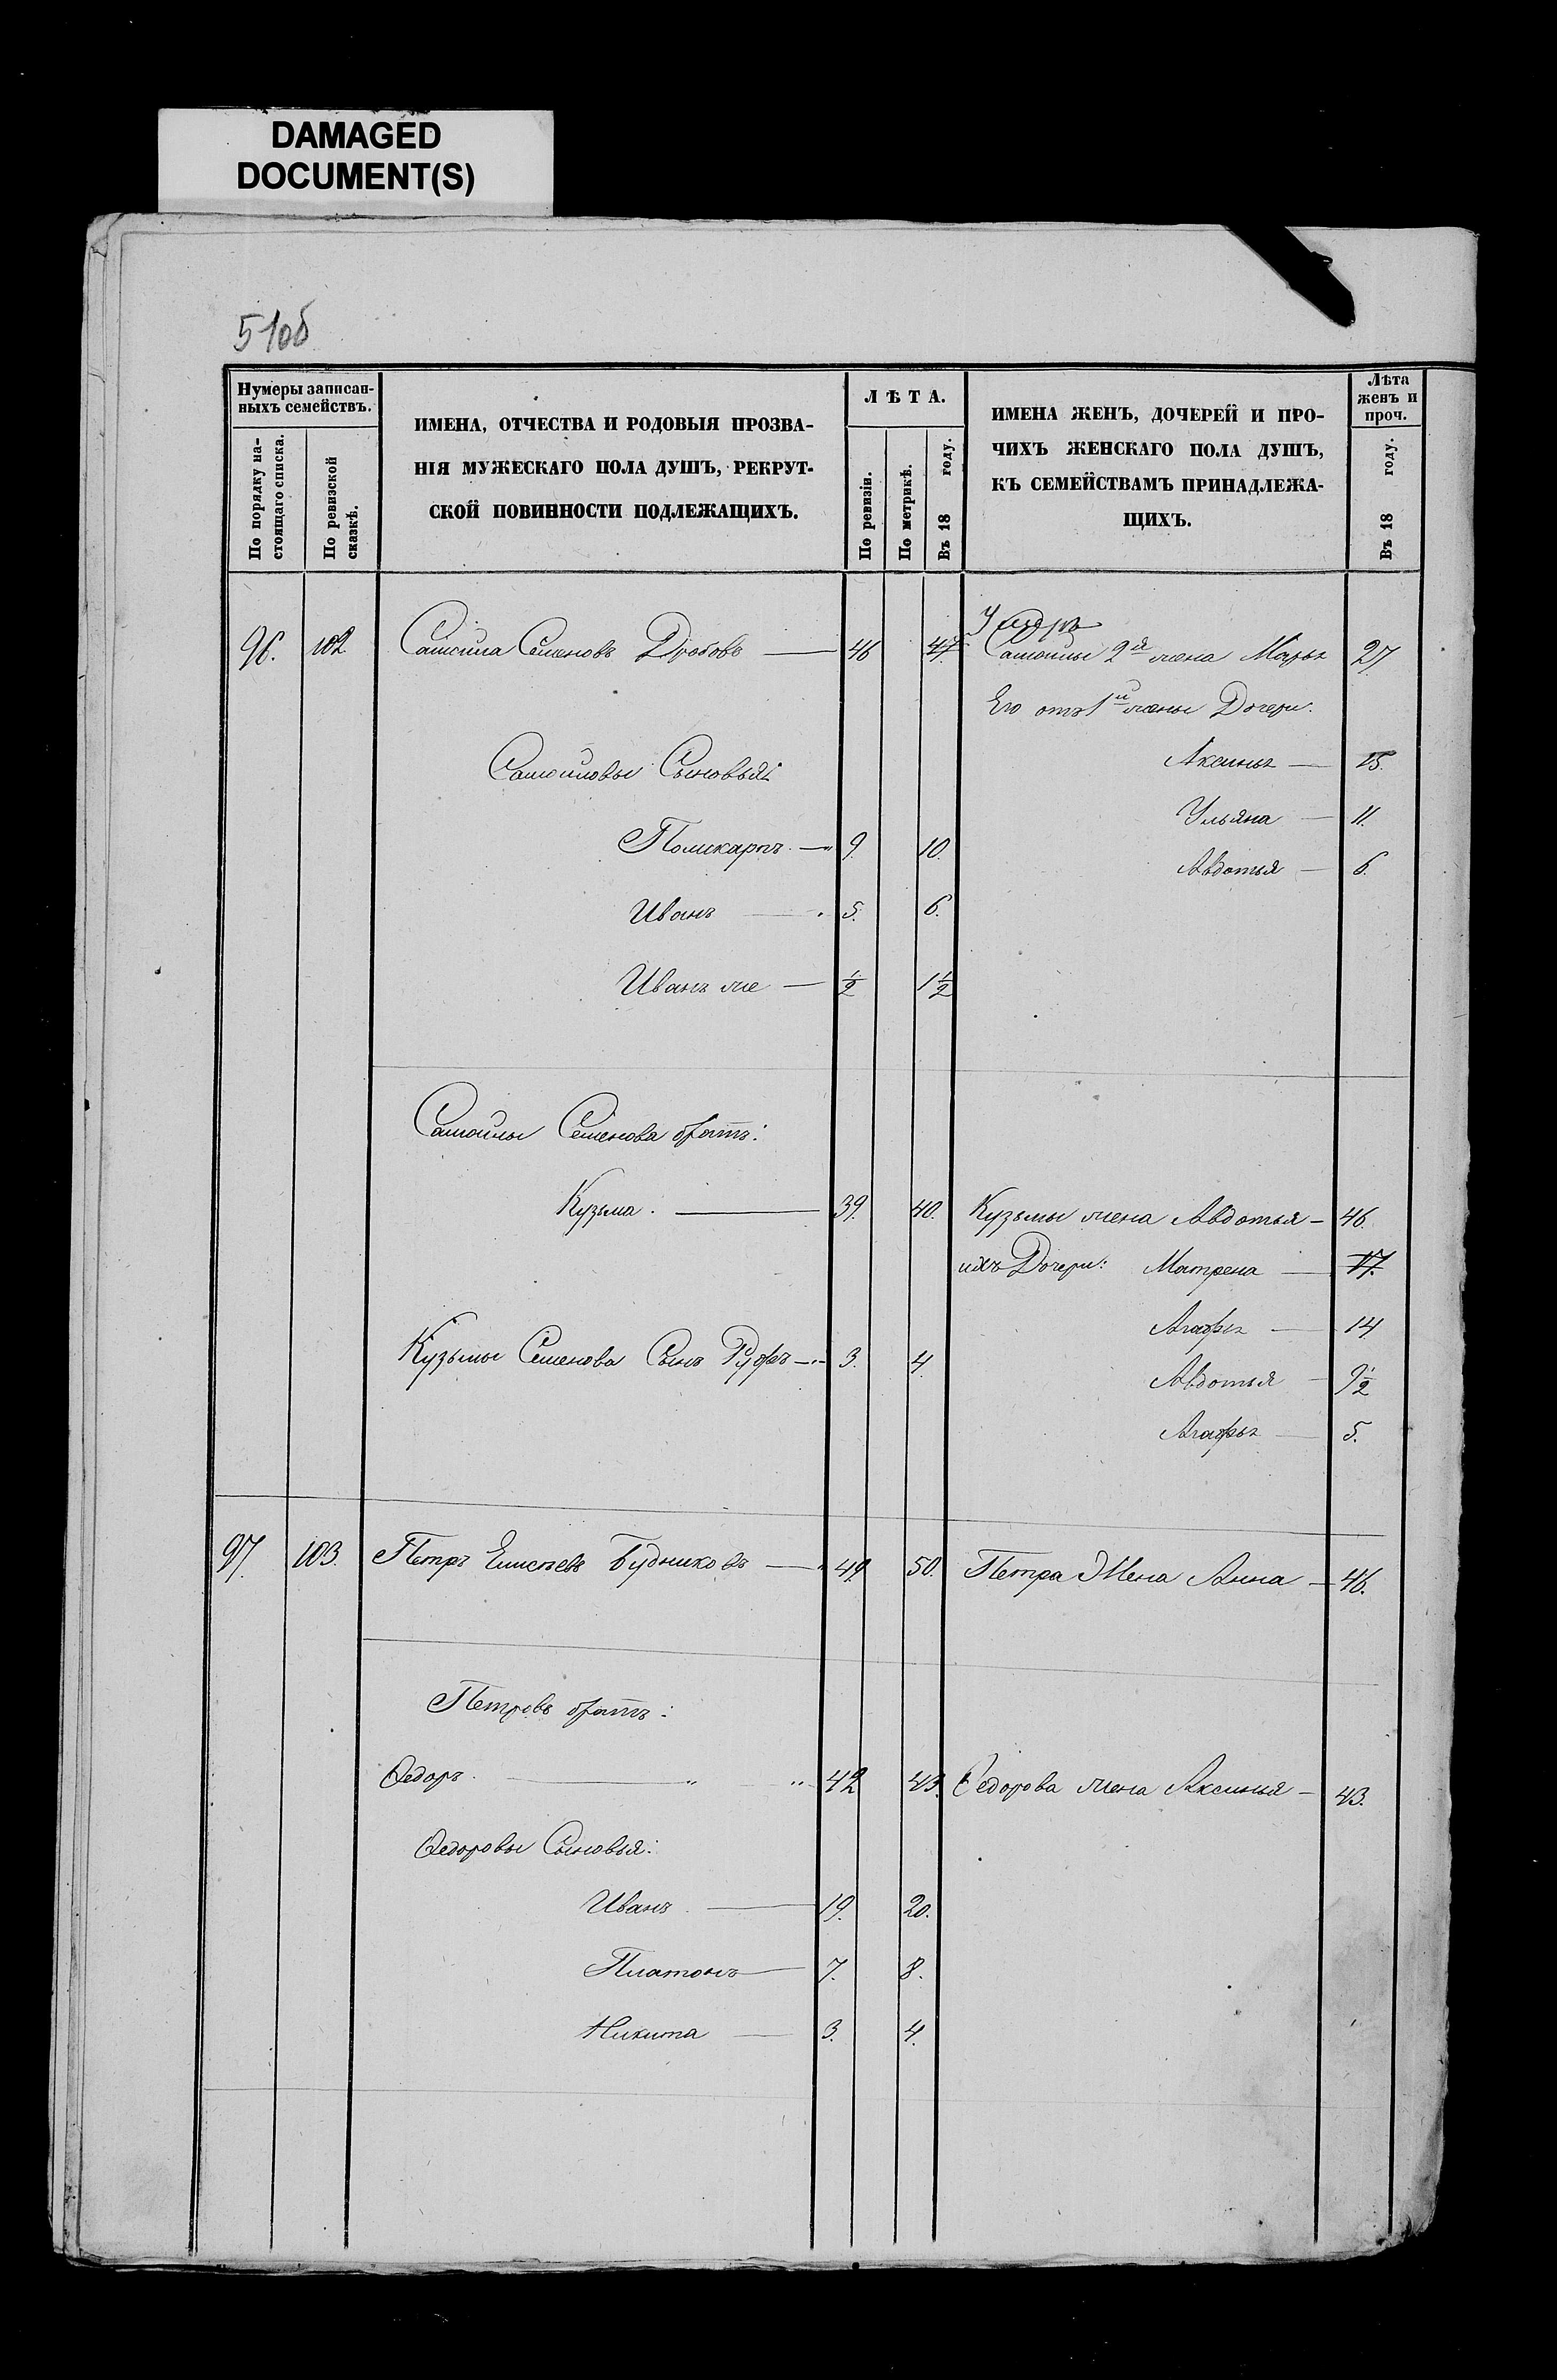 DAMAGED
DOCUMENT(S)
51об
Нумеры записан-
ныхъ семействъ.
По порядку на-
стоящаго списка.
По ревизской
сказкѣ.
ИМЕНА, ОТЧЕСТВА И РОДОВЫЯ ПРОЗВА-
НІЯ МУЖЕСКАГО ПОЛА ДУШЪ, РЕКРУТ-
СКОЙ ПОВИННОСТИ ПОДЛЕЖАЩИХЪ.
ЛѢТА.
По ревизіи.
По метрикѣ.
Въ 18 году.
ИМЕНА ЖЕНЪ, ДОЧЕРЕЙ И ПРО-
ЧИХЪ ЖЕНСКАГО ПОЛА ДУШЪ,
КЪ СЕМЕЙСТВАМЪ ПРИНАДЛЕЖА-
ЩИХЪ.
Лѣта
женъ и
проч.
Въ 18 году.
96. 102. Самойла Семеновъ Дробовъ — 46 47. Самойлы 2й жена Марья 27
Его отъ 1й жены Дочери:
Самойловы Сыновья: Аксинья — 15.
Ульяна — 11.
Поликарпъ — 9. 10.
Авдотья — 6.
Иванъ — 5. 6.
Иванъ же — ½ 1½
Самойлы Семенова братъ:
Кузьма. — 39. 40. Кузьмы жена Авдотья — 46.
ихъ Дочери: Матрена — 17.
Агафья — 14
Кузьмы Семенова Сынъ Руфъ — 3. 4.
Авдотья — 9½
Агафья — 5.
97. 103. Петръ Елисѣевъ Будниковъ — 49. 50. Петра Жена Анна — 46.
Петровъ братъ:
Ѳедоръ. — 42 43. Ѳедорова жена Аксинья — 43.
Ѳедоровы Сыновья:
Иванъ — 19. 20.
Платонъ — 7. 8.
Никита — 3. 4.